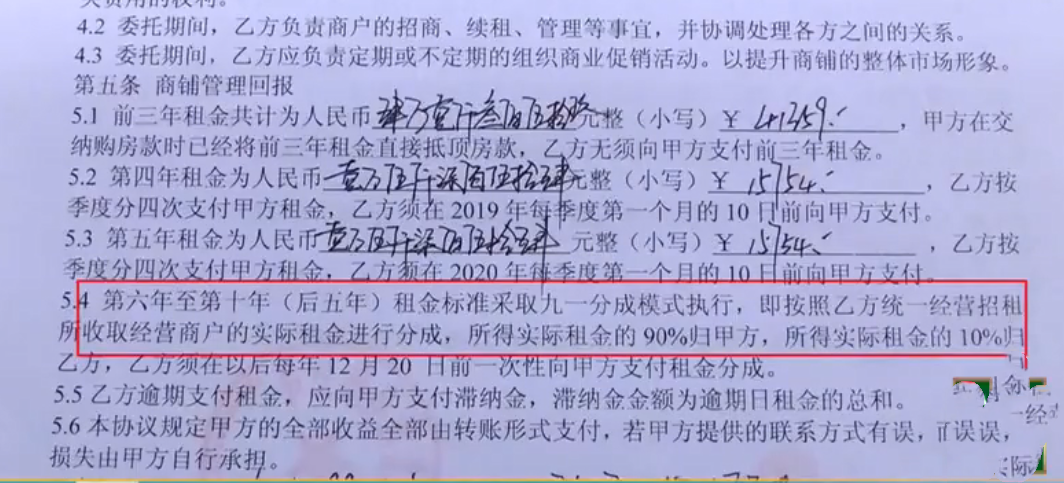 4.2 委托期间，乙方负责商户的招商、续租、管理等事宜，并协调处理各方之间的关系。
4.3 委托期间，乙方应负责定期或不定期的组织商业促销活动。以提升商铺的整体市场形象。
第五条 商铺管理回报
5.1 前三年租金共计为人民币肆万壹仟叁佰伍拾玖元整（小写）￥41359.-，甲方在交
纳购房款时已经将前三年租金直接抵顶房款，乙方无须向甲方支付前三年租金。
5.2 第四年租金为人民币壹万伍仟柒佰伍拾肆元整（小写）￥15754.-，乙方按
季度分四次支付甲方租金，乙方须在 2019 年每季度第一个月的 10 日前向甲方支付。
5.3 第五年租金为人民币壹万伍仟柒佰伍拾肆元整（小写）￥15754.-，乙方按
季度分四次支付甲方租金，乙方须在 2020 年每季度第一个月的 10 日前向甲方支付。
5.4 第六年至第十年（后五年）租金标准采取九一分成模式执行，即按照乙方统一经营招租
所收取经营商户的实际租金进行分成，所得实际租金的 90%归甲方，所得实际租金的 10%归
乙方，乙方须在以后每年 12 月 20 日前一次性向甲方支付租金分成。
5.5 乙方逾期支付租金，应向甲方支付滞纳金，滞纳金金额为逾期日租金的总和。
5.6 本协议规定甲方的全部收益全部由转账形式支付，若甲方提供的联系方式有误，
损失由甲方自行承担。